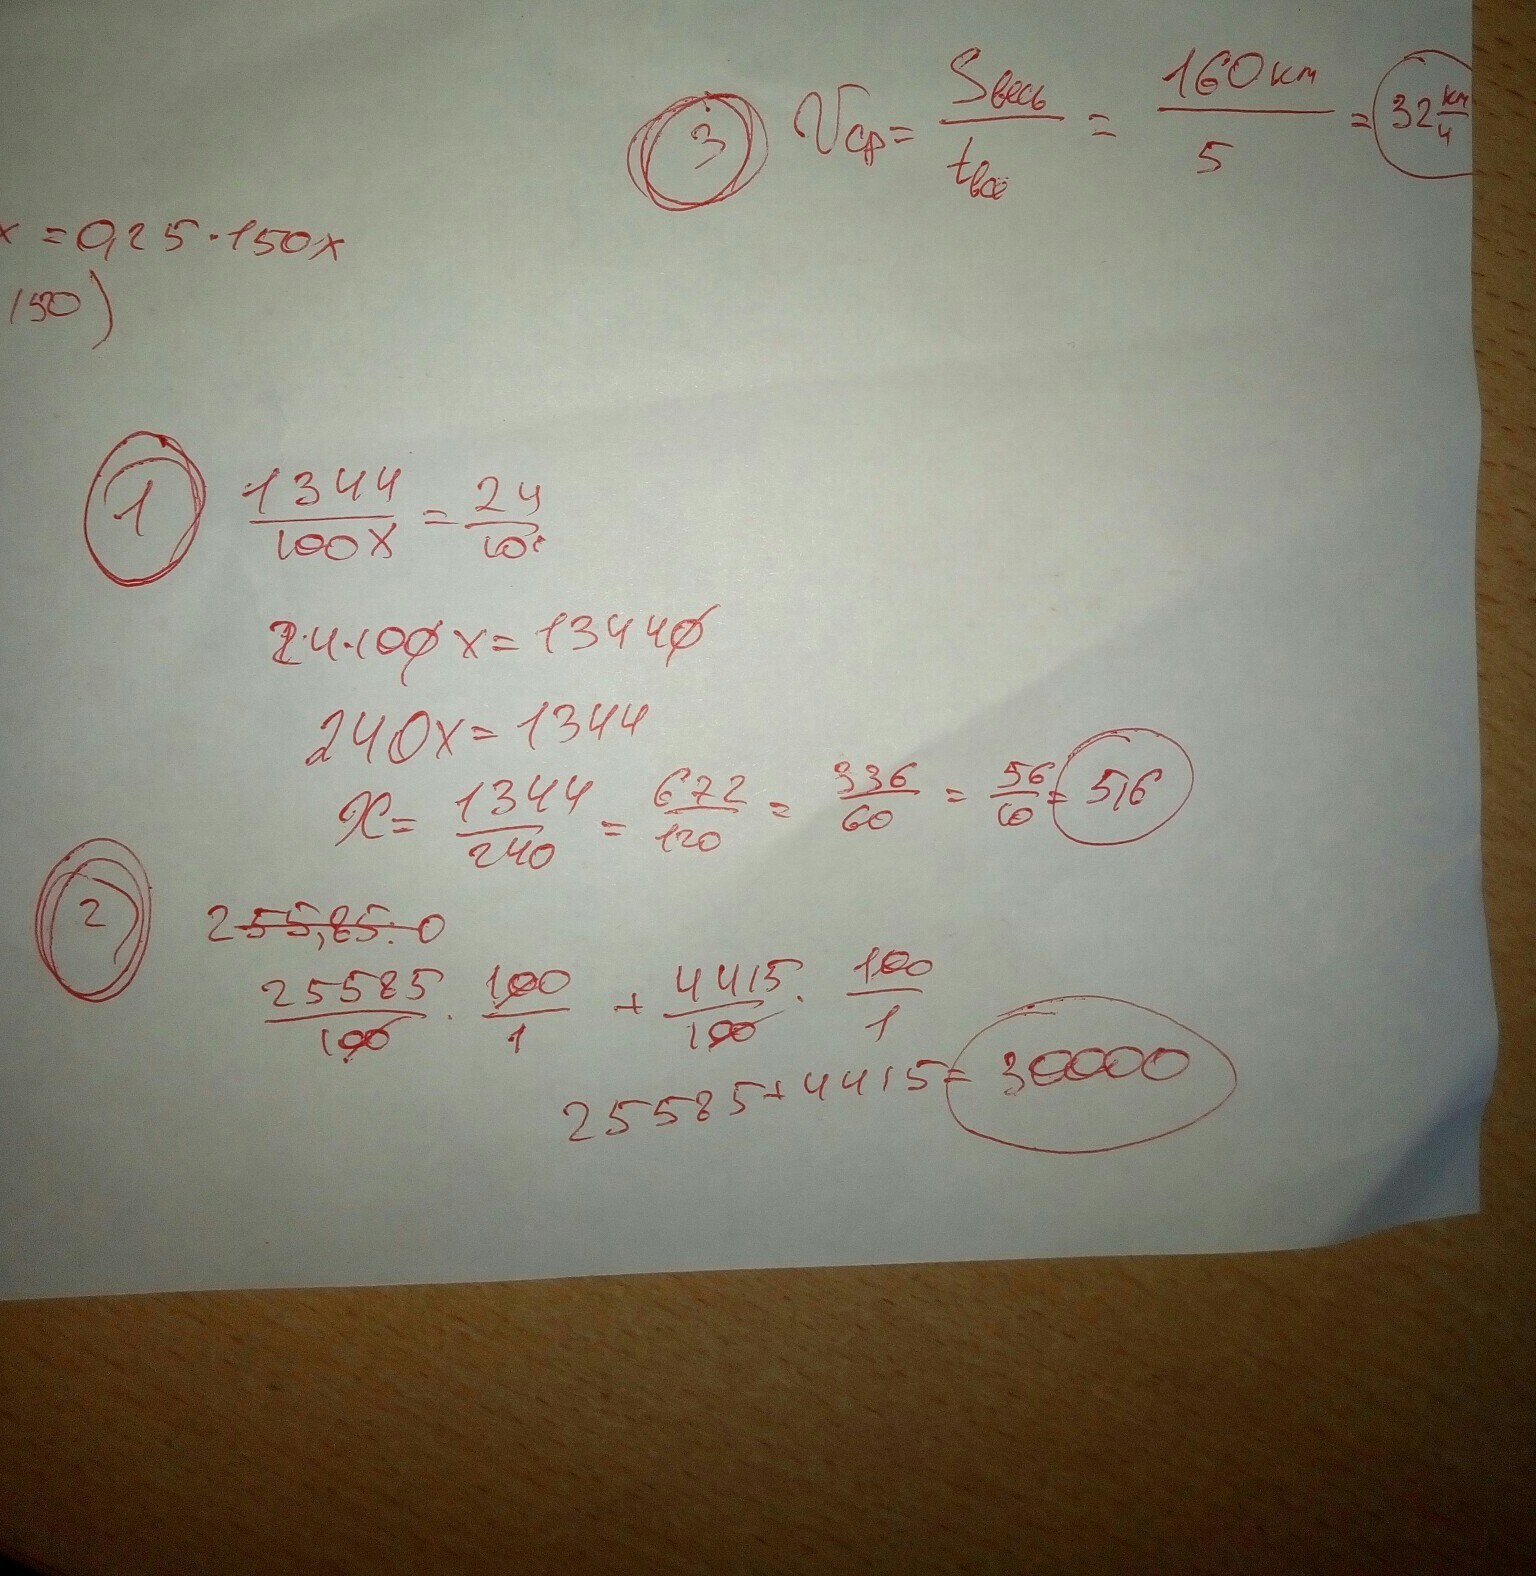 3 Vср = Sвесь / tвсё = 160 км / 5 = 32 км/ч
x = 0,25 · 150x
150)
1 1344 / 100x = 24 / 10
24·100x = 13440
240x = 1344
x = 1344 / 240 = 672 / 120 = 336 / 60 = 56 / 10 = 5,6
2 255,85 : 0
25585 / 100 · 100 / 1 + 4415 / 100 · 100 / 1
25585 + 4415 = 30000